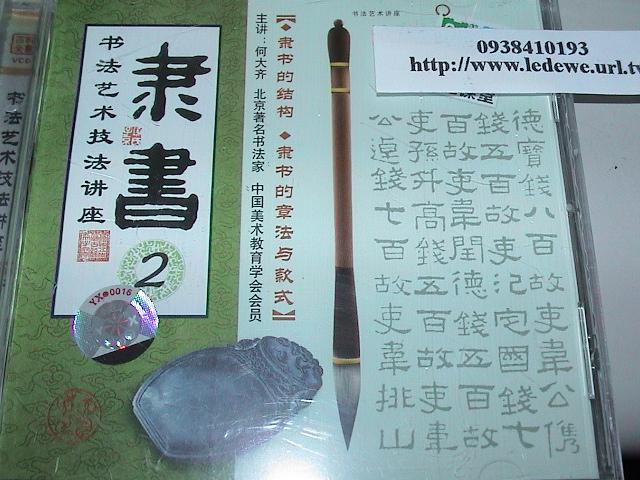 隶書
2
书法艺术技法讲座
主讲：何大齐 北京著名书法家 中国美术教育学会会员
【◆隶书的结构 ◆隶书的章法与款式】
书法艺术讲座
0938410193
http://www.ledewe.url.tw
课堂
德寶錢八百故吏韋公儁
錢五百故吏氾定國錢七
百故吏韋閏德錢五百故
吏孫升高錢五百故吏韋
公逴錢七百故吏韋排山
YX●0016
VCD
书法艺术技法讲座